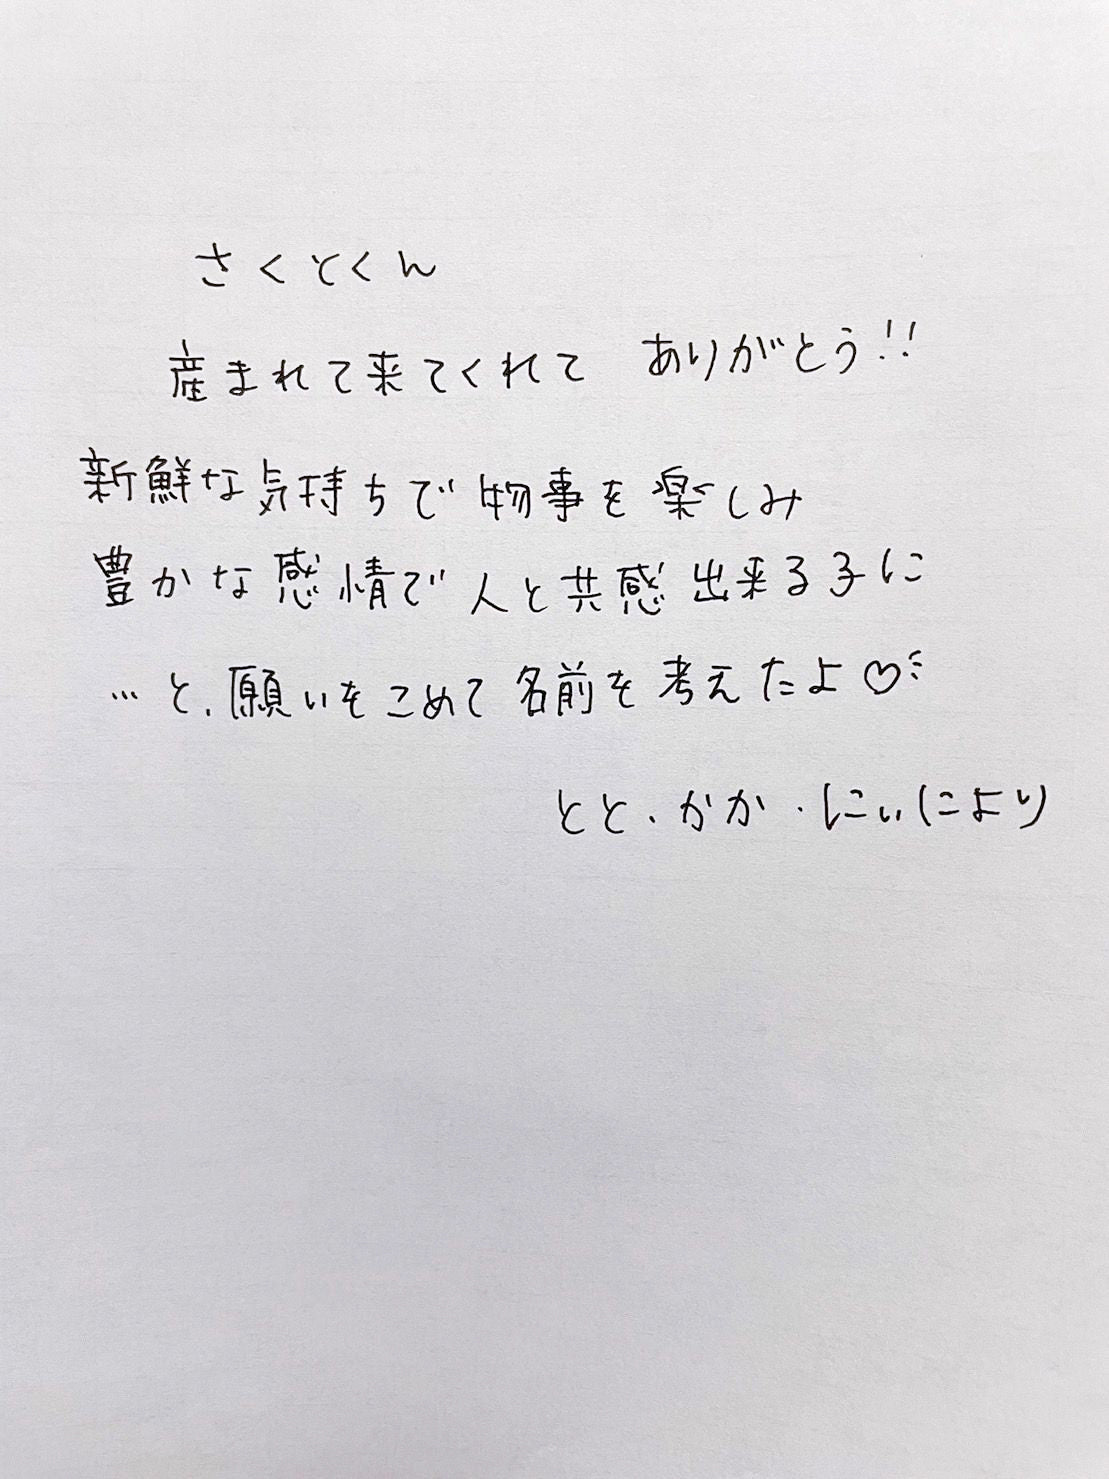 さくとくん
産まれて来てくれて ありがとう!!
新鮮な気持ちで物事を楽しみ
豊かな感情で人と共感出来る子に
…と、願いをこめて名前を考えたよ♡
とと、かか・にぃにより